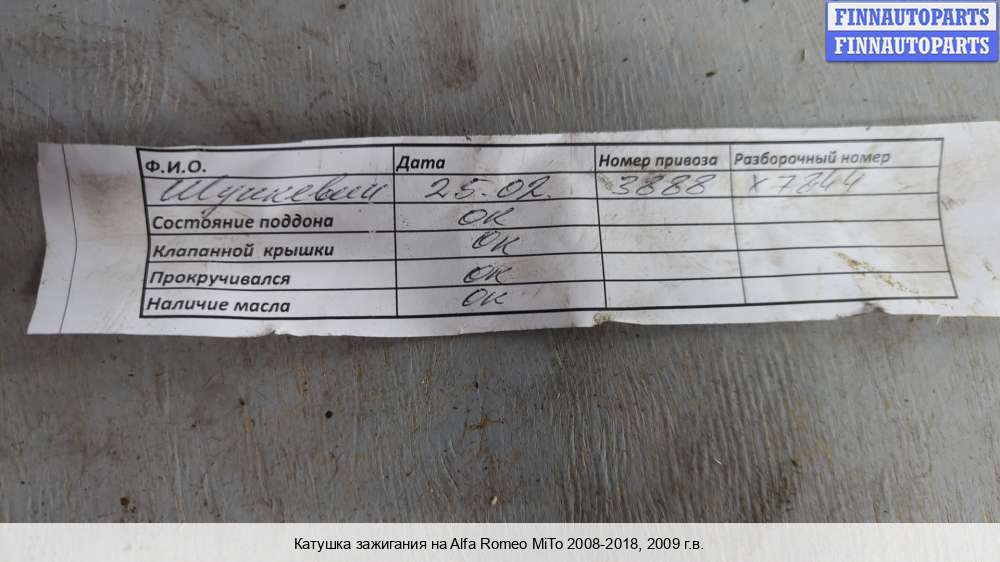 FINNAUTOPARTS
FINNAUTOPARTS
Ф.И.О. Дата Номер привоза Разборочный номер
Шушкевич 25.02. 3888 х7844
Состояние поддона ок
Клапанной крышки ок
Прокручивался ок
Наличие масла ок
Катушка зажигания на Alfa Romeo MiTo 2008-2018, 2009 г.в.